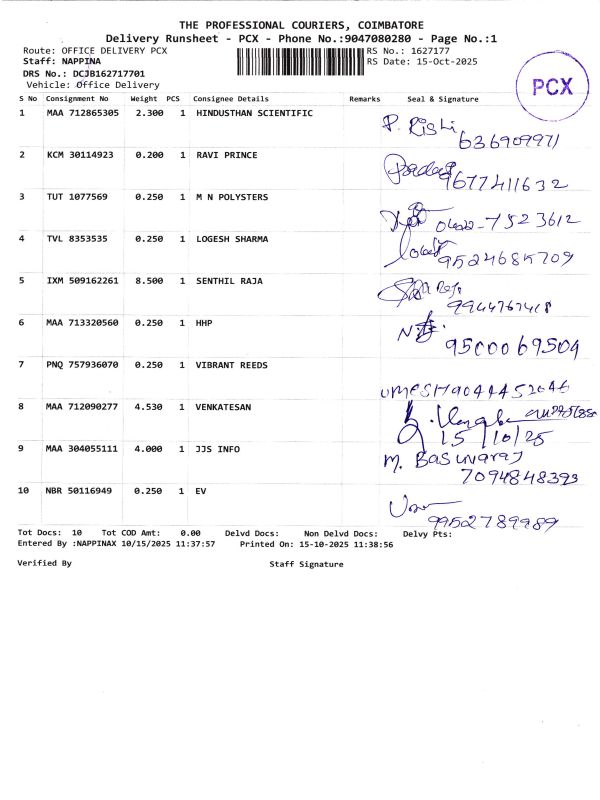 THE PROFESSIONAL COURIERS, COIMBATORE
Delivery Runsheet - PCX - Phone No.:9047080280 - Page No.:1
Route: OFFICE DELIVERY PCX RS No.: 1627177
Staff: NAPPINA RS Date: 15-Oct-2025
DRS No.: DCJB162717701
Vehicle: Office Delivery
PCX
S No Consignment No Weight PCS Consignee Details Remarks Seal & Signature
1 MAA 712865305 2.300 1 HINDUSTHAN SCIENTIFIC P. Rishi
636909971
2 KCM 30114923 0.200 1 RAVI PRINCE
9677411632
3 TUT 1077569 0.250 1 M N POLYSTERS
0422-7523612
4 TVL 8353535 0.250 1 LOGESH SHARMA
9524685709
5 IXM 509162261 8.500 1 SENTHIL RAJA
9944767418
6 MAA 713320560 0.250 1 HHP
9500069504
7 PNQ 757936070 0.250 1 VIBRANT REEDS
UMESH
8 MAA 712090277 4.530 1 VENKATESAN
15/10/25
9 MAA 304055111 4.000 1 JJS INFO M. Basuvaraj
7094848393
10 NBR 50116949 0.250 1 EV
9952789989
Tot Docs: 10 Tot COD Amt: 0.00 Delvd Docs: Non Delvd Docs: Delvy Pts:
Entered By :NAPPINAX 10/15/2025 11:37:57 Printed On: 15-10-2025 11:38:56
Verified By Staff Signature